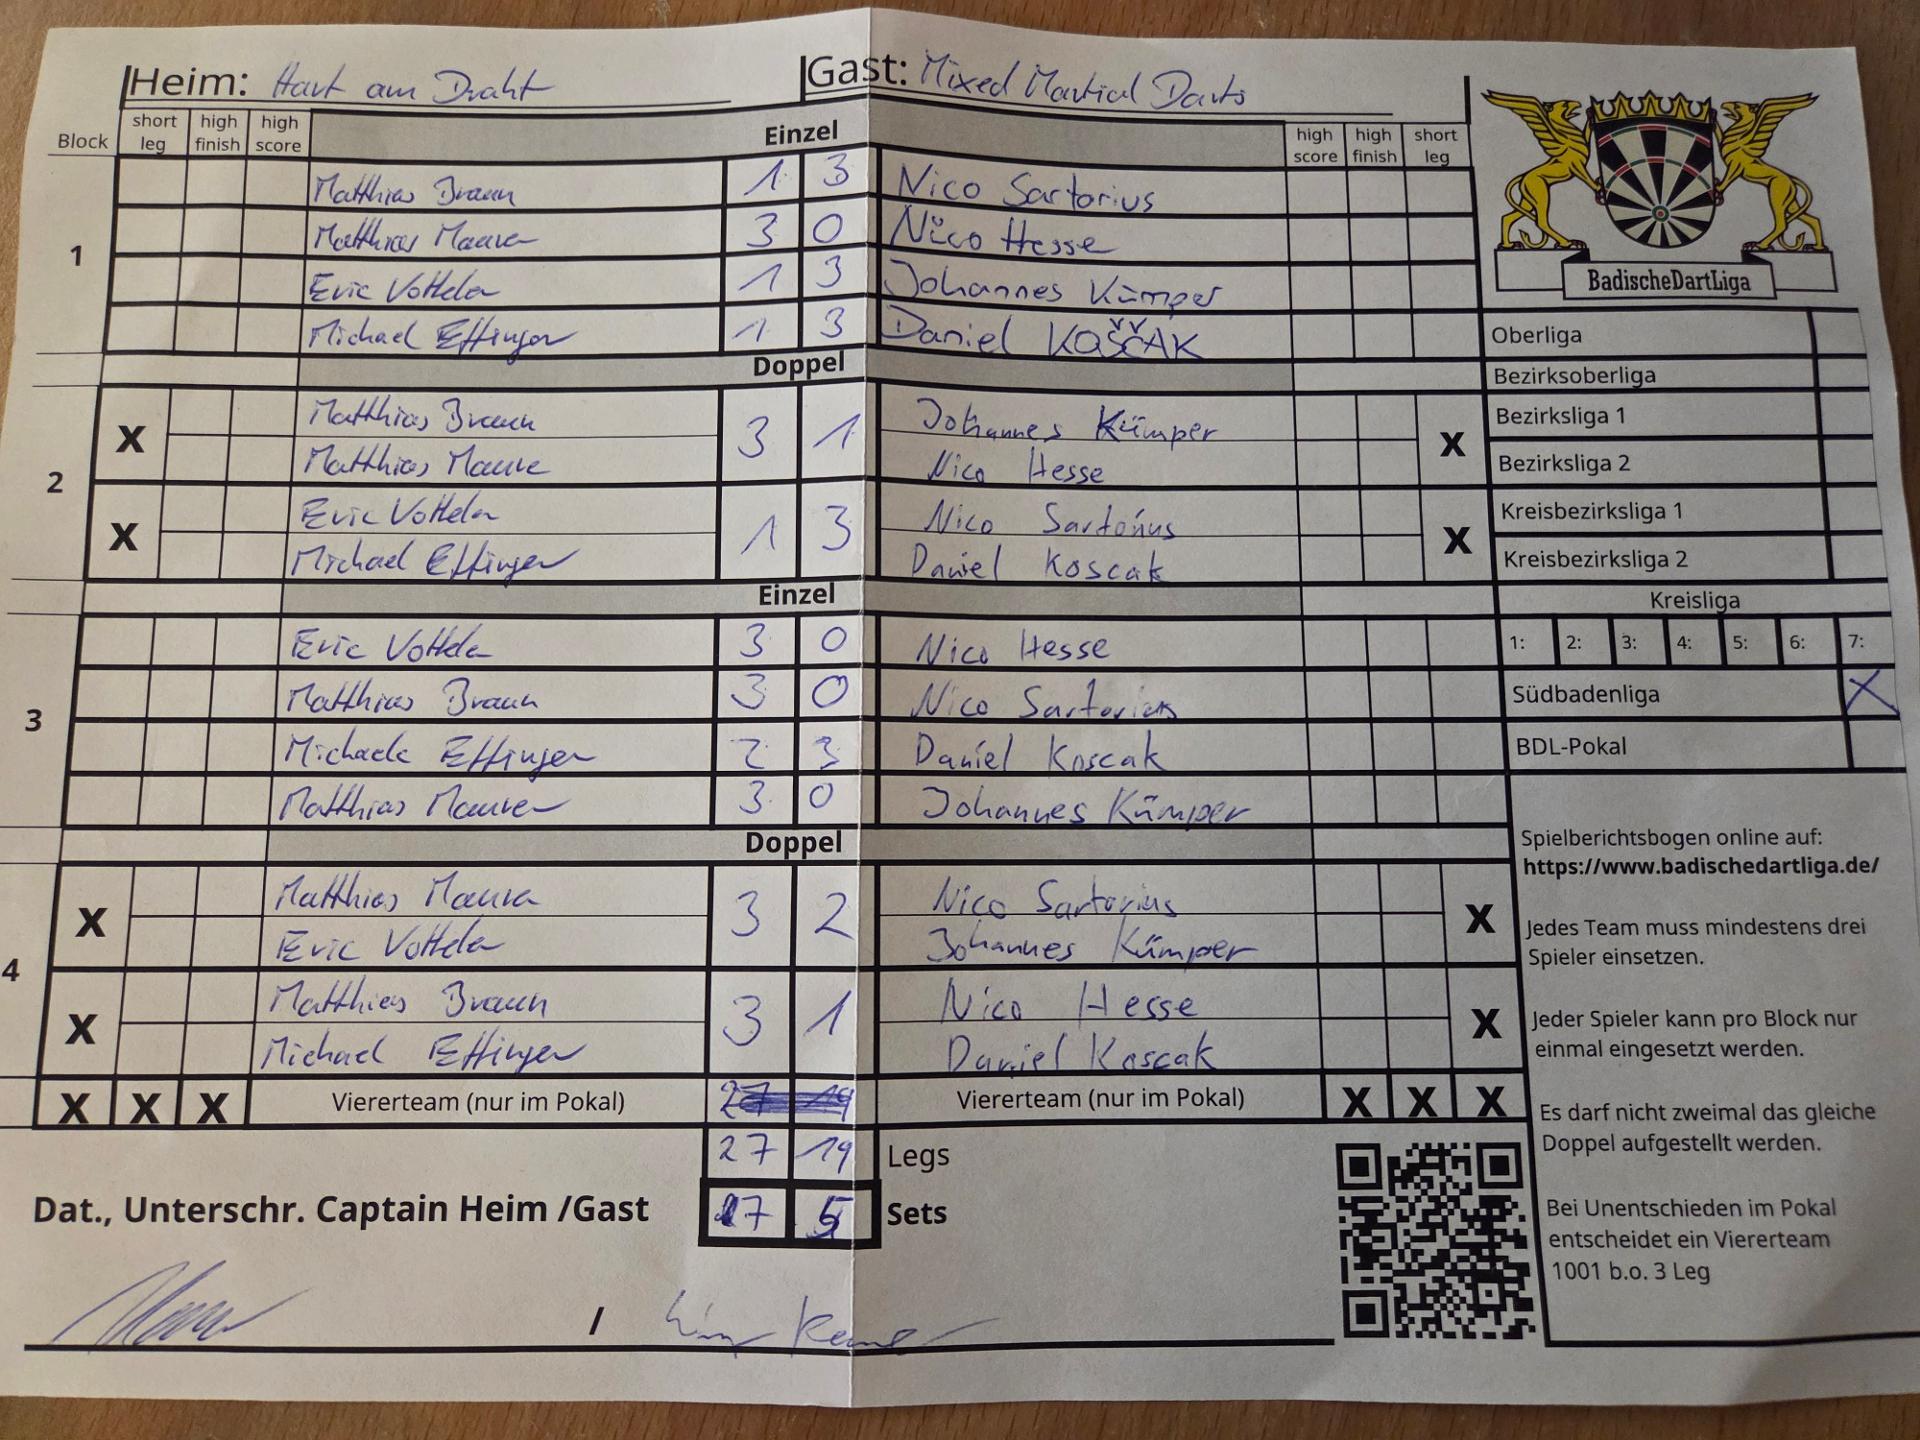 Heim: Hart am Draht Gast: Mixed Martial Darts
Block short leg high finish high score Einzel high score high finish short leg
1
Matthias Braun 1 3 Nico Sartorius
Matthias Maurer 3 0 Nico Hesse
Eric Votteler 1 3 Johannes Kümper
Michael Effinger 1 3 Daniel KOŠČAK
Doppel
2
X Matthias Braun 3 1 Johannes Kümper X
Matthias Maurer Nico Hesse
X Eric Votteler 1 3 Nico Sartorius X
Michael Effinger Daniel Koscak
Einzel
3
Eric Votteler 3 0 Nico Hesse
Matthias Braun 3 0 Nico Sartorius
Michaele Effinger 2 3 Daniel Koscak
Matthias Maurer 3 0 Johannes Kümper
Doppel
4
X Matthias Maurer 3 2 Nico Sartorius X
Eric Votteler Johannes Kümper
X Matthias Braun 3 1 Nico Hesse X
Michael Effinger Daniel Koscak
X X X Viererteam (nur im Pokal) 27 19 Viererteam (nur im Pokal) X X X
27 19 Legs
Dat., Unterschr. Captain Heim /Gast 7 5 Sets
/
BadischeDartLiga
Oberliga
Bezirksoberliga
Bezirksliga 1
Bezirksliga 2
Kreisbezirksliga 1
Kreisbezirksliga 2
Kreisliga
1: 2: 3: 4: 5: 6: 7:
Südbadenliga X
BDL-Pokal
Spielberichtsbogen online auf:
https://www.badischedartliga.de/
Jedes Team muss mindestens drei
Spieler einsetzen.
Jeder Spieler kann pro Block nur
einmal eingesetzt werden.
Es darf nicht zweimal das gleiche
Doppel aufgestellt werden.
Bei Unentschieden im Pokal
entscheidet ein Viererteam
1001 b.o. 3 Leg